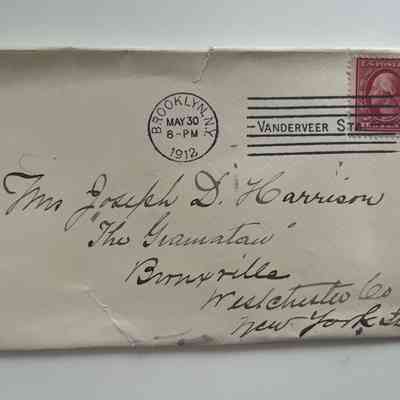 BROOKLYN, N.Y.
MAY 30
8-PM
1912
VANDERVEER STA.
Mrs Joseph D. Harrison
"The Gramatan"
Bronxville
Westchester Co
New York